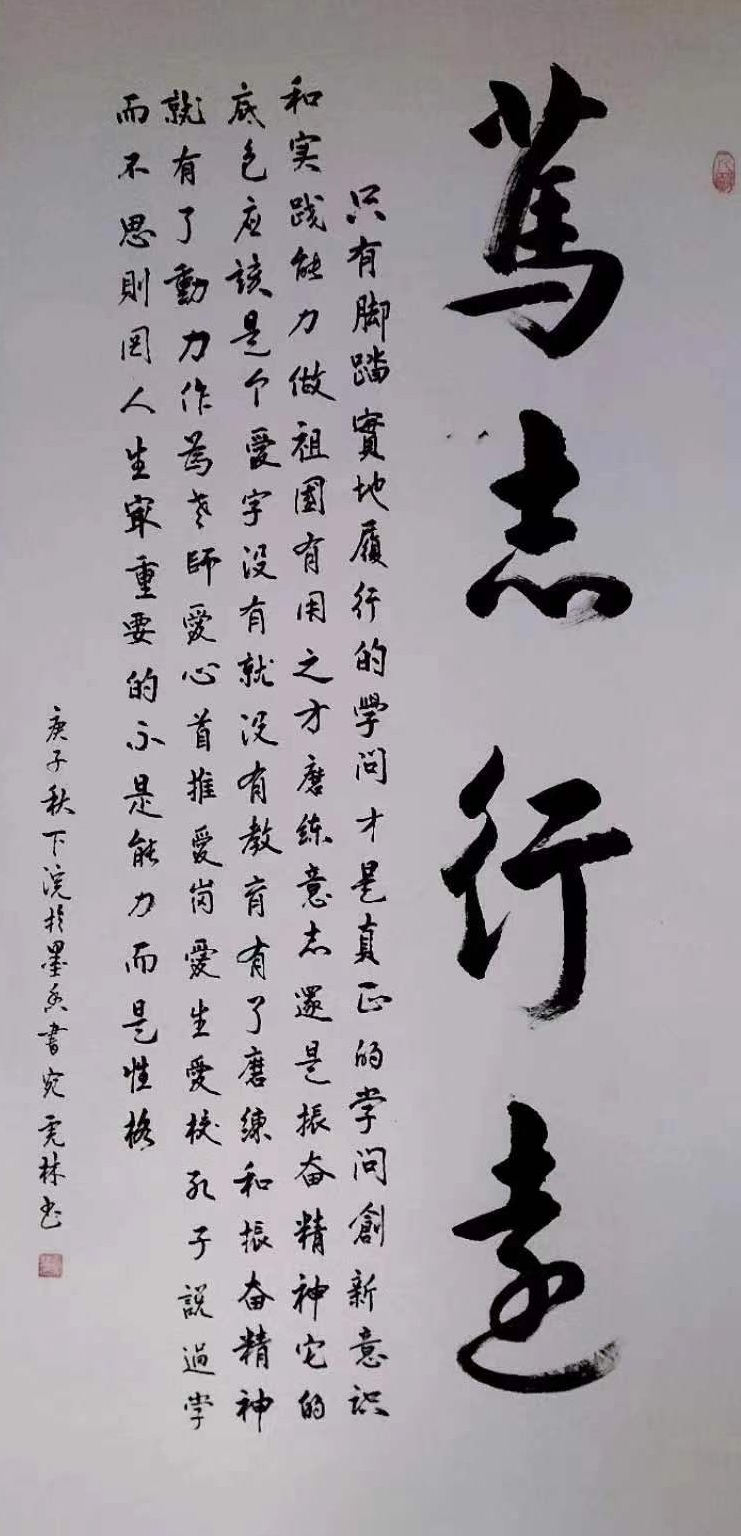 篤志行遠
只有脚踏實地履行的學问才是真正的学问創新意识
和实践能力做祖國有用之才磨练意志還是振奋精神它的
底色应該是个愛字没有就没有教育有了磨練和振奋精神
就有了動力作為老師愛心首推爱岗愛生愛校孔子說過学
而不思則罔人生寂重要的不是能力而是性格
庚子秋下浣於墨香書宛雲林书